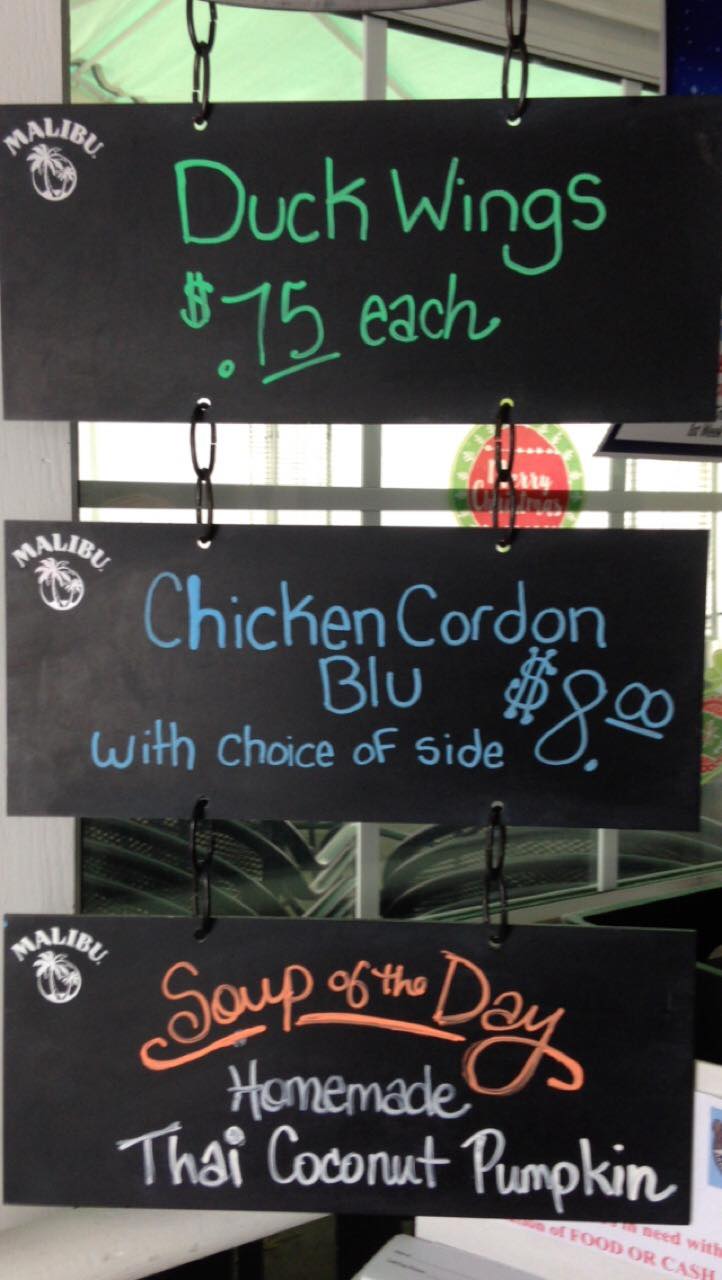 MALIBU
Duck Wings
$.75 each
Merry
Christmas
MALIBU
Chicken Cordon
Blu $8.00
with choice of side
MALIBU
Soup of the Day
Homemade
Thai Coconut Pumpkin
in need with
of FOOD OR CASH